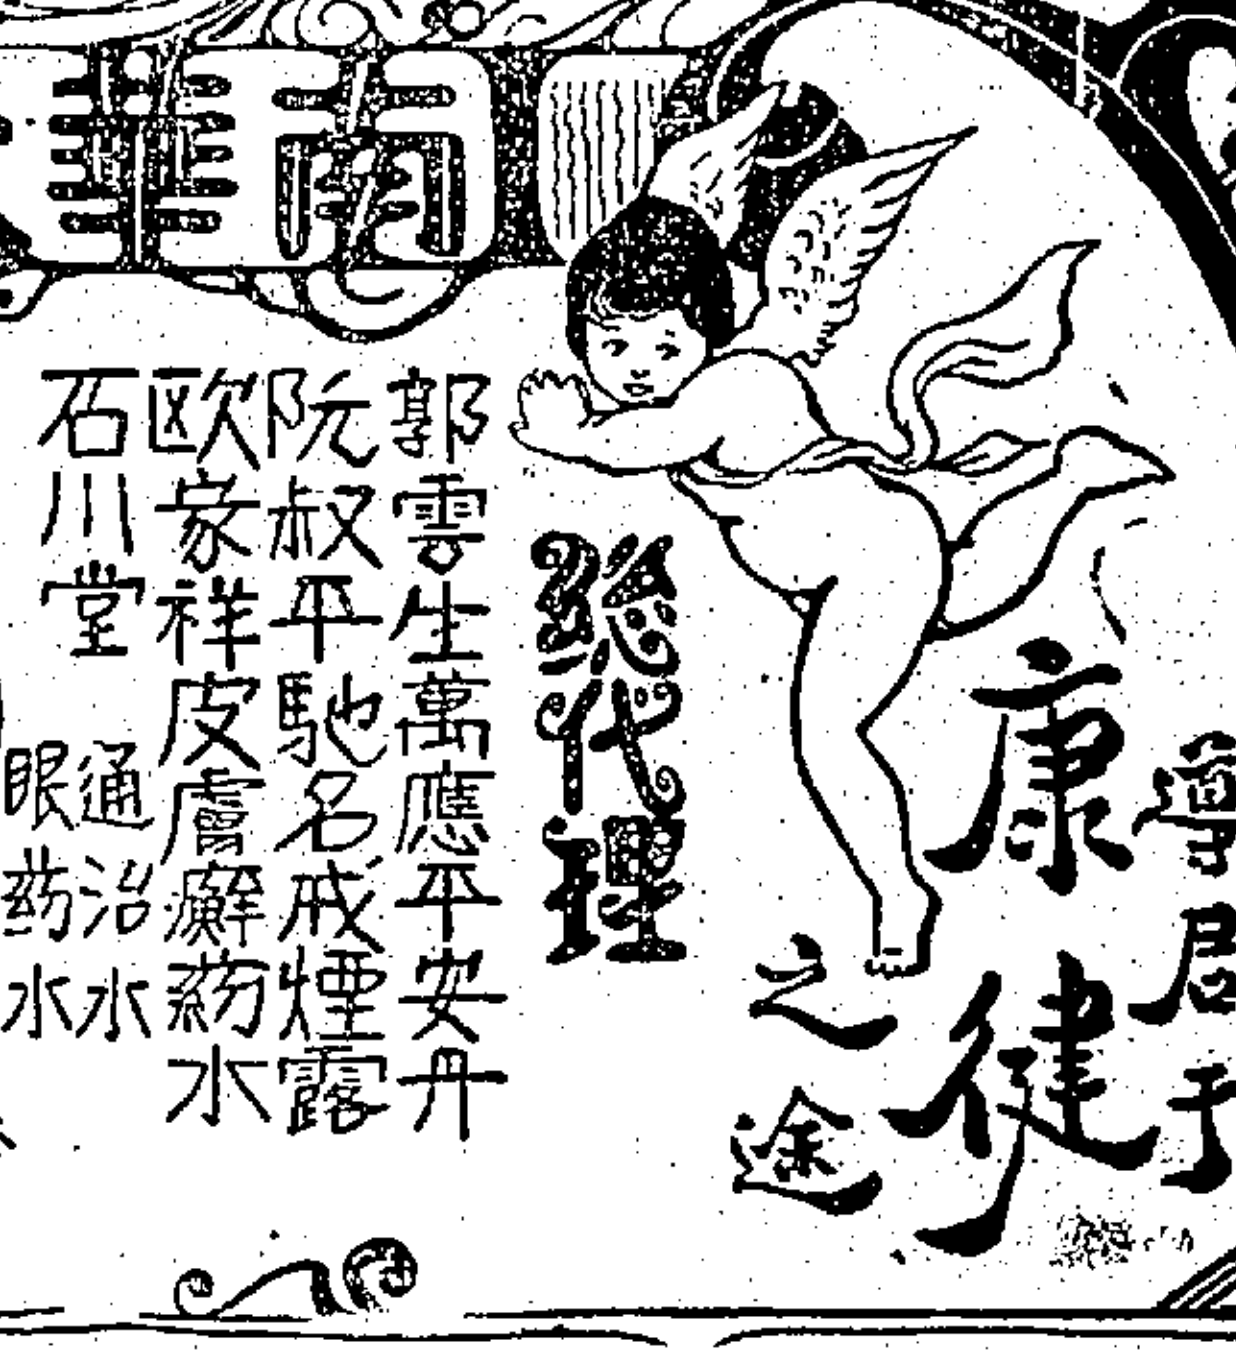 南華
導君于
康健
之途
總代理
郭雲生萬應平安丹
阮叔平馳名戒煙露
欧家祥皮膚癬药水
石川堂
通治水
眼药水